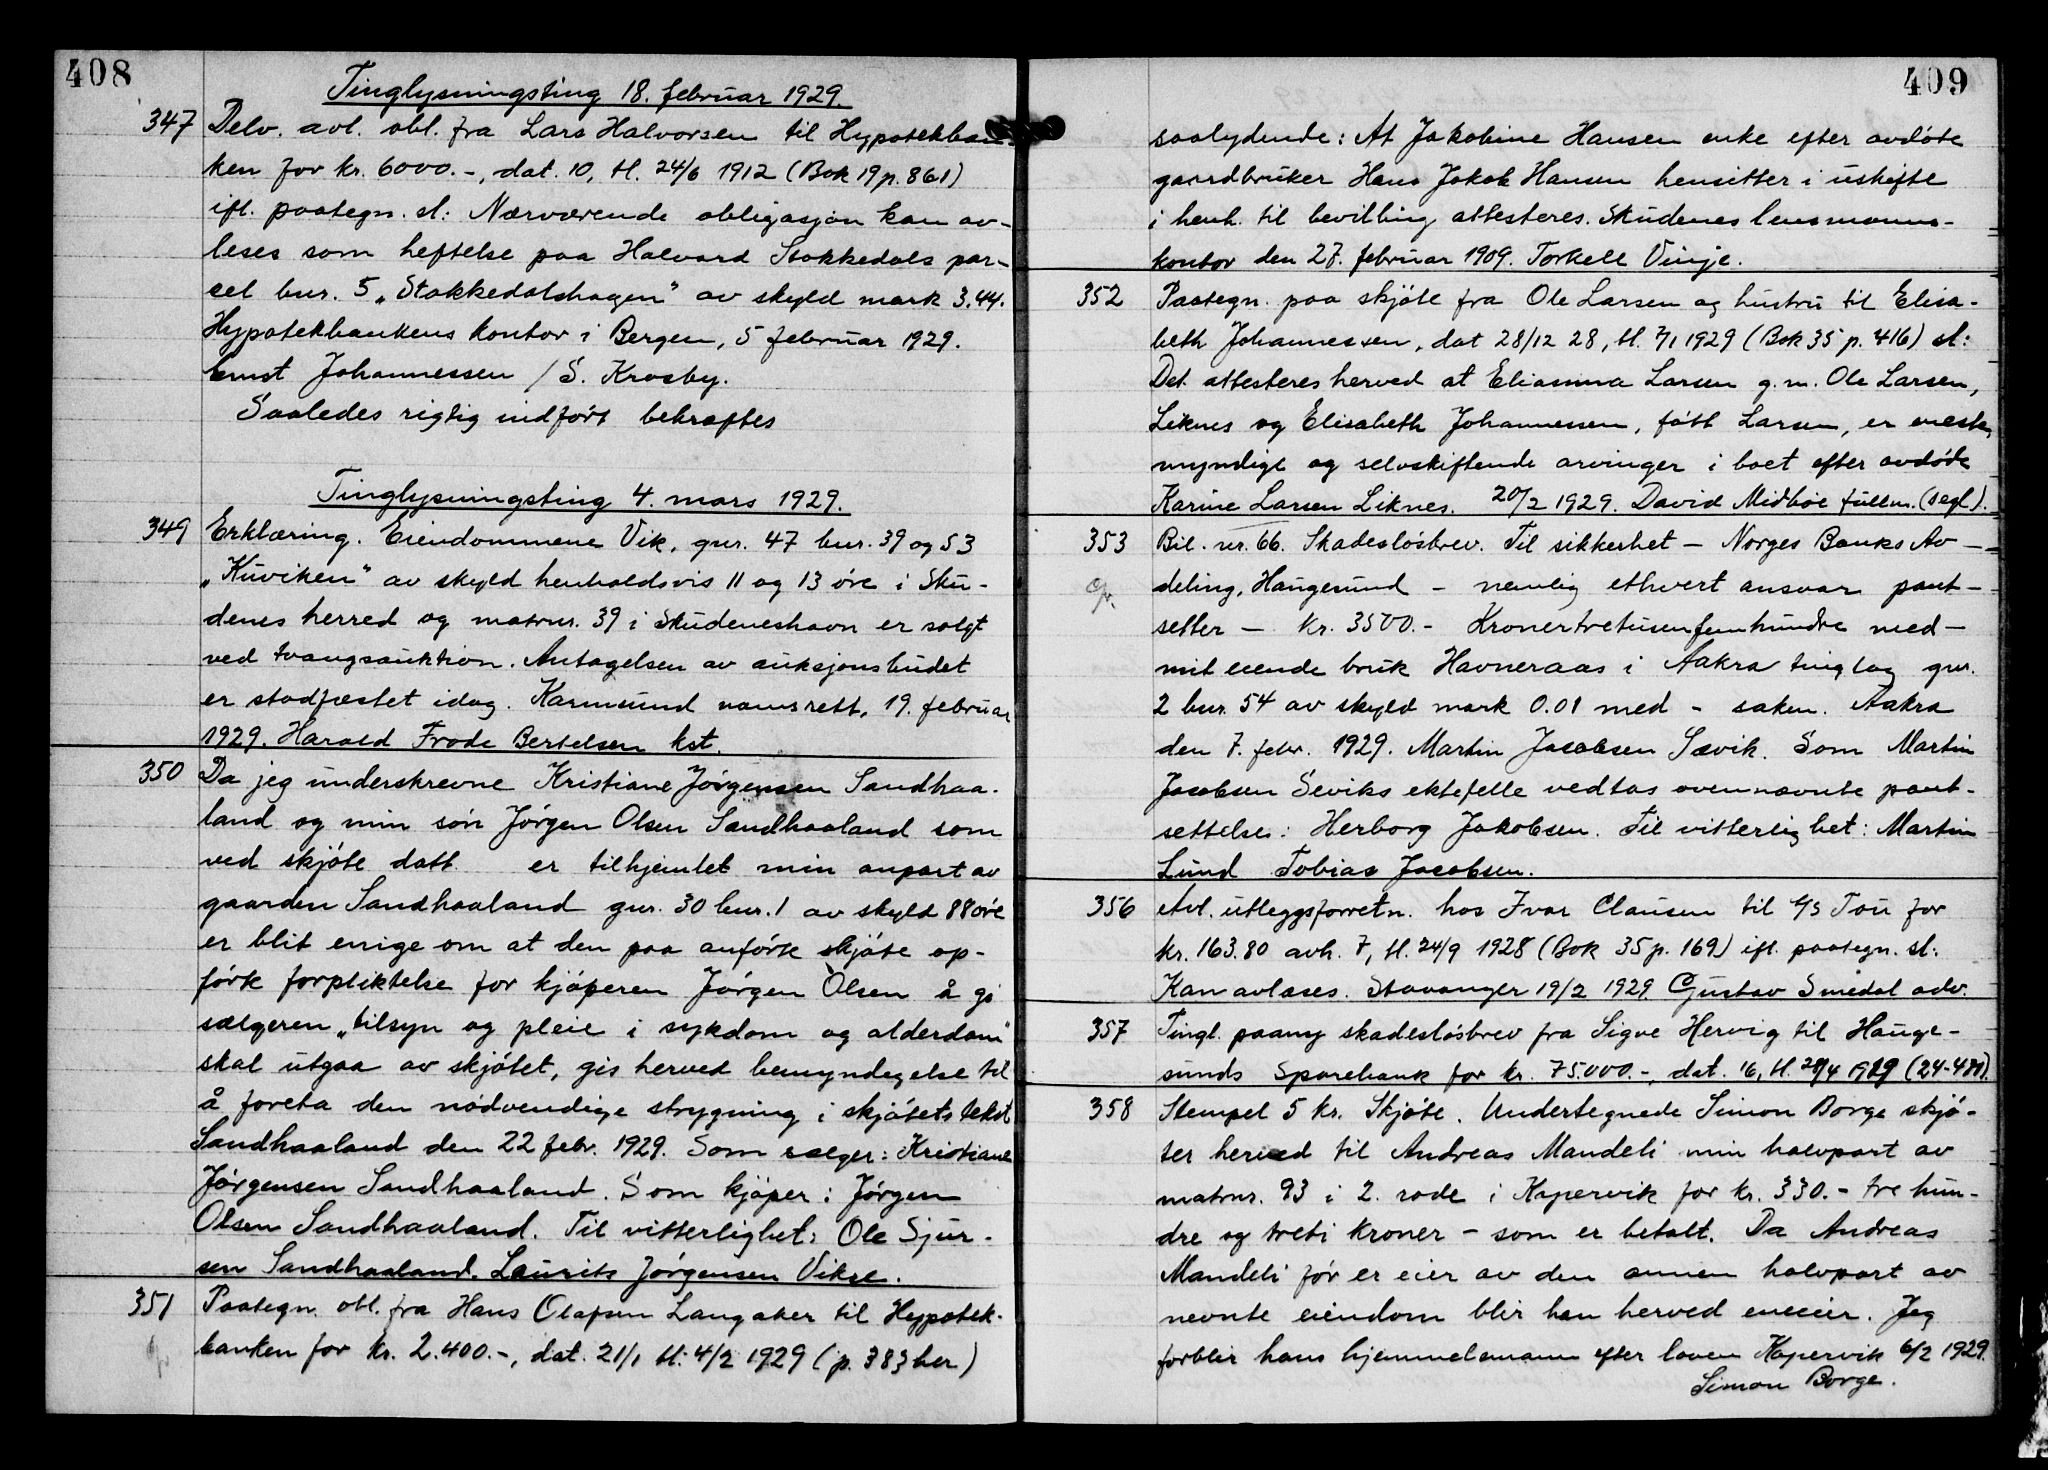 408
Tinglysningsting 18. februar 1929.
347 Delv. avl. obl. fra Lars Halvorsen til Hypotekban-
ken for kr. 6000.-, dat. 10, tl. 24/6 1912 (Bok 19 p. 861)
ifl. paategn. sl: Nærværende obligasjon kan av-
leses som heftelse paa Halvard Stokkedals par-
cel bnr. 5 „Stokkedalshagen" av skyld mark 3.44.
Hypotekbankens kontor i Bergen, 5 februar 1929.
Ernst Johannessen / S. Krosby.
Saaledes rigtig indført bekræftes
Tinglysningsting 4. mars 1929.
349 Erklæring. Eiendommene Vik, gnr. 47 bnr. 39 og 53
„Kuviken" av skyld henholdsvis 11 og 13 øre i Sku-
denes herred og matrnr. 39 i Skudeneshavn er solgt
ved tvangsauktion. Antagelsen av auksjonsbudet
er stadfæstet idag. Karmsund namsrett, 19. februar
1929. Harald Frode Bertelsen kst.
350 Da jeg underskrevne Kristiane Jørgensen Sandhaa-
land og min søn Jørgen Olsen Sandhaaland som
ved skjøte datt. er tilhjemlet min anpart av
gaarden Sandhaaland gnr. 30 bnr. 1 av skyld 88 øre
er blit enige om at den paa anførte skjøte op-
førte forpliktelse for kjøperen Jørgen Olsen å gi
sælgeren „tilsyn og pleie i sykdom og alderdom"
skal utgaa av skjøtet, gis herved bemyndigelse til
å foreta den nødvendige strygning i skjøtets tekst
Sandhaaland den 22 febr. 1929. Som sælger: Kristiane
Jørgensen Sandhaaland. Som kjøper: Jørgen
Olsen Sandhaaland. Til vitterlighet: Ole Sjur-
sen Sandhaaland. Laurits Jørgensen Vikse.
351 Paategn. obl. fra Hans Olafsen Langaker til Hypotek-
banken for kr. 2.400.-, dat. 21/1 tl. 4/2 1929 (p. 383 her)
409
saalydende: At Jakobine Hansen enke efter avdøte
gaardbruker Hans Jakob Hansen hensitter i uskifte
i henh. til bevilling attesteres. Skudenes lensmanns-
kontor den 27. februar 1909. Torkell Vinje.
352 Paategn. paa skjøte fra Ole Larsen og hustru til Elisa-
beth Johannessen, dat 28/12 28, tl. 7/1 1929 (Bok 35 p. 416) sl:
Det attesteres herved at Eliasinna Larsen g.m. Ole Larsen,
Liknes og Elisabeth Johannessen, født Larsen, er eneste,
myndige og selvskiftende arvinger i boet efter avdøde
Karine Larsen Liknes. 20/2 1929. David Midbøe fullm. (segl).
353 Bil. nr. 66. Skadesløsbrev. Til sikkerhet - Norges Banks Av-
deling, Haugesund - nemlig ethvert ansvar pant-
setter - kr. 3500.- Kronertretusenfemhundre med-
mit eiende bruk Havneraas i Aakra tinglag gnr.
2 bnr. 54 av skyld mark 0.01 med - saken. Aakra
den 7. febr. 1929. Martin Jacobsen Sævik. Som Martin
Jacobsen Seviks ektefelle vedtas ovennævnte pant-
settelse: Herborg Jakobsen. Til vitterlighet: Martin
Lund Tobias Jacobsen.
356 Avl. utleggsforretn. hos Ivar Clausen til A/S Tou for
kr. 163.80 avh. 7, tl. 24/9 1928 (Bok 35 p. 169) ifl. paategn. sl:
Kan avlæses. Stavanger 19/2 1929 Gustav Smedal adv.
357 Tingl. paany skadesløsbrev fra Sigve Hervig til Hauge-
sunds Sparebank for kr. 75.000.-, dat. 16, tl. /4 1919 (24-480).
358 Stempel 5 kr. Skjøte. Undertegnede Simon Borge skjø-
ter herved til Andreas Mandeli min halvpart av
matrnr. 93 i 2. rode i Kopervik for kr. 330.- tre hun-
dre og treti kroner - som er betalt. Da Andreas
Mandeli før er eier av den annen halvpart av
nevnte eiendom blir han herved eneeier. Jeg
forblir hans hjemmelsmann efter loven Kopervik 6/2 1929.
Simon Borge.